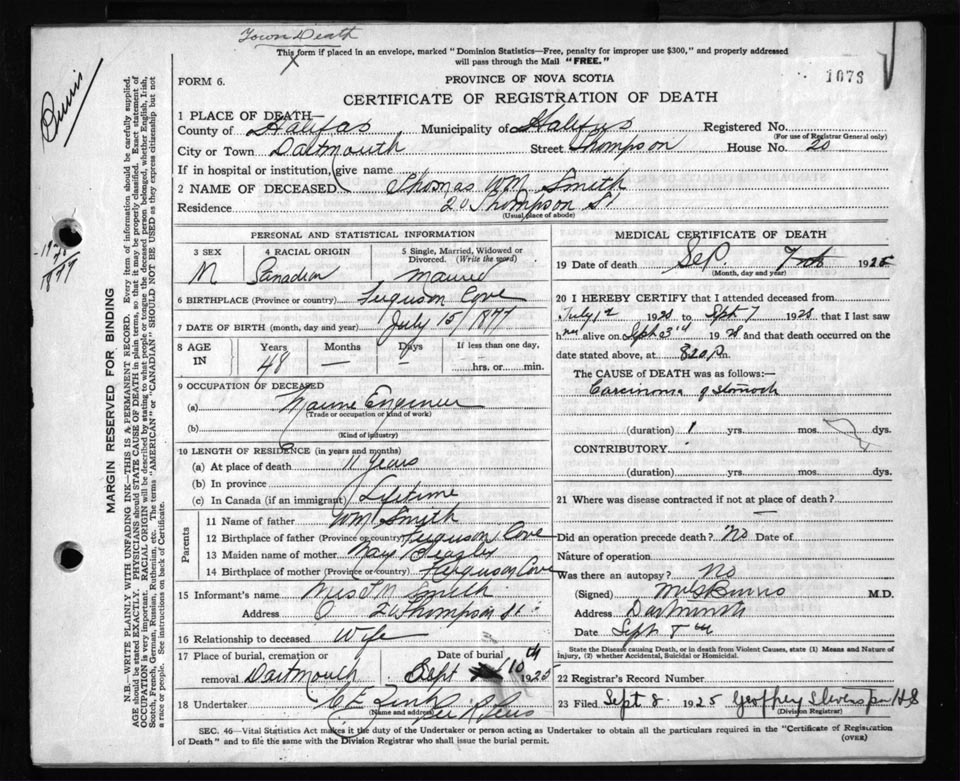 Town Death
This form if placed in an envelope, marked "Dominion Statistics—Free, penalty for improper use $300," and properly addressed
will pass through the Mail "FREE."
FORM 6.
PROVINCE OF NOVA SCOTIA
1073
CERTIFICATE OF REGISTRATION OF DEATH
1 PLACE OF DEATH—
County of Halifax Municipality of Halifax Registered No.
(For use of Registrar General only)
City or Town Dartmouth Street Thompson House No. 20
If in hospital or institution, give name
2 NAME OF DECEASED Thomas Wm Smith
Residence 20 Thompson St
(Usual place of abode)
PERSONAL AND STATISTICAL INFORMATION
3 SEX 4 RACIAL ORIGIN 5 Single, Married, Widowed or
Divorced. (Write the word)
M Canadian Married
6 BIRTHPLACE (Province or country) Ferguson Cove
7 DATE OF BIRTH (month, day and year) July 15/1877
8 AGE IN Years Months Days If less than one day,
48 — — hrs. or min.
9 OCCUPATION OF DECEASED
(a) Marine Engineer
(Trade or occupation or kind of work)
(b)
(Kind of industry)
10 LENGTH OF RESIDENCE (in years and months)
(a) At place of death 11 years
(b) In province
(c) In Canada (if an immigrant) Lifetime
Parents
11 Name of father Wm Smith
12 Birthplace of father (Province or country) Ferguson Cove
13 Maiden name of mother May Beazley
14 Birthplace of mother (Province or country) Ferguson Cove
15 Informant's name Mrs T M Smith
Address 20 Thompson St
16 Relationship to deceased Wife
17 Place of burial, cremation or Date of burial
removal Dartmouth Sept 10th 1925
18 Undertaker
(Name and address)
MEDICAL CERTIFICATE OF DEATH
19 Date of death Sep. 7th 1925
(Month, day and year)
20 I HEREBY CERTIFY that I attended deceased from
July 1st 1925 to Sept 7 1925 that I last saw
him alive on Sept 3rd 1925 and that death occurred on the
date stated above, at 8 20 P.m.
The CAUSE of DEATH was as follows:—
Carcinoma of Stomach
(duration) 1 yrs. mos. dys.
CONTRIBUTORY
(duration) yrs. mos. dys.
21 Where was disease contracted if not at place of death?
—
Did an operation precede death? No Date of
Nature of operation
Was there an autopsy? No
(Signed) Burris M.D.
Address Dartmouth
Date Sept 8th
State the Disease causing Death, or in death from Violent Causes, state (1) Means and Nature of
Injury, (2) whether Accidental, Suicidal or Homicidal.
22 Registrar's Record Number
23 Filed Sept 8 1925 Geoffrey Stevens per HS
(Division Registrar)
SEC. 46—Vital Statistics Act makes it the duty of the Undertaker or person acting as Undertaker to obtain all the particulars required in the "Certificate of Registration
of Death" and to file the same with the Division Registrar who shall issue the burial permit.
(OVER)
MARGIN RESERVED FOR BINDING
N.B.—WRITE PLAINLY WITH UNFADING INK—THIS IS A PERMANENT RECORD. Every item of information should be carefully supplied.
AGE should be stated EXACTLY. PHYSICIANS should STATE CAUSE OF DEATH in plain terms, so that it may be properly classified. Exact statement of
OCCUPATION is very important. RACIAL ORIGIN will be described by stating to what people or tongue the deceased person belonged, whether English, Irish,
Scotch, French, German, Russian, Ruthenian, etc. The terms "AMERICAN" or "CANADIAN" SHOULD NOT BE USED as they express citizenship but not
a race or people. See instructions on back of Certificate.
1877